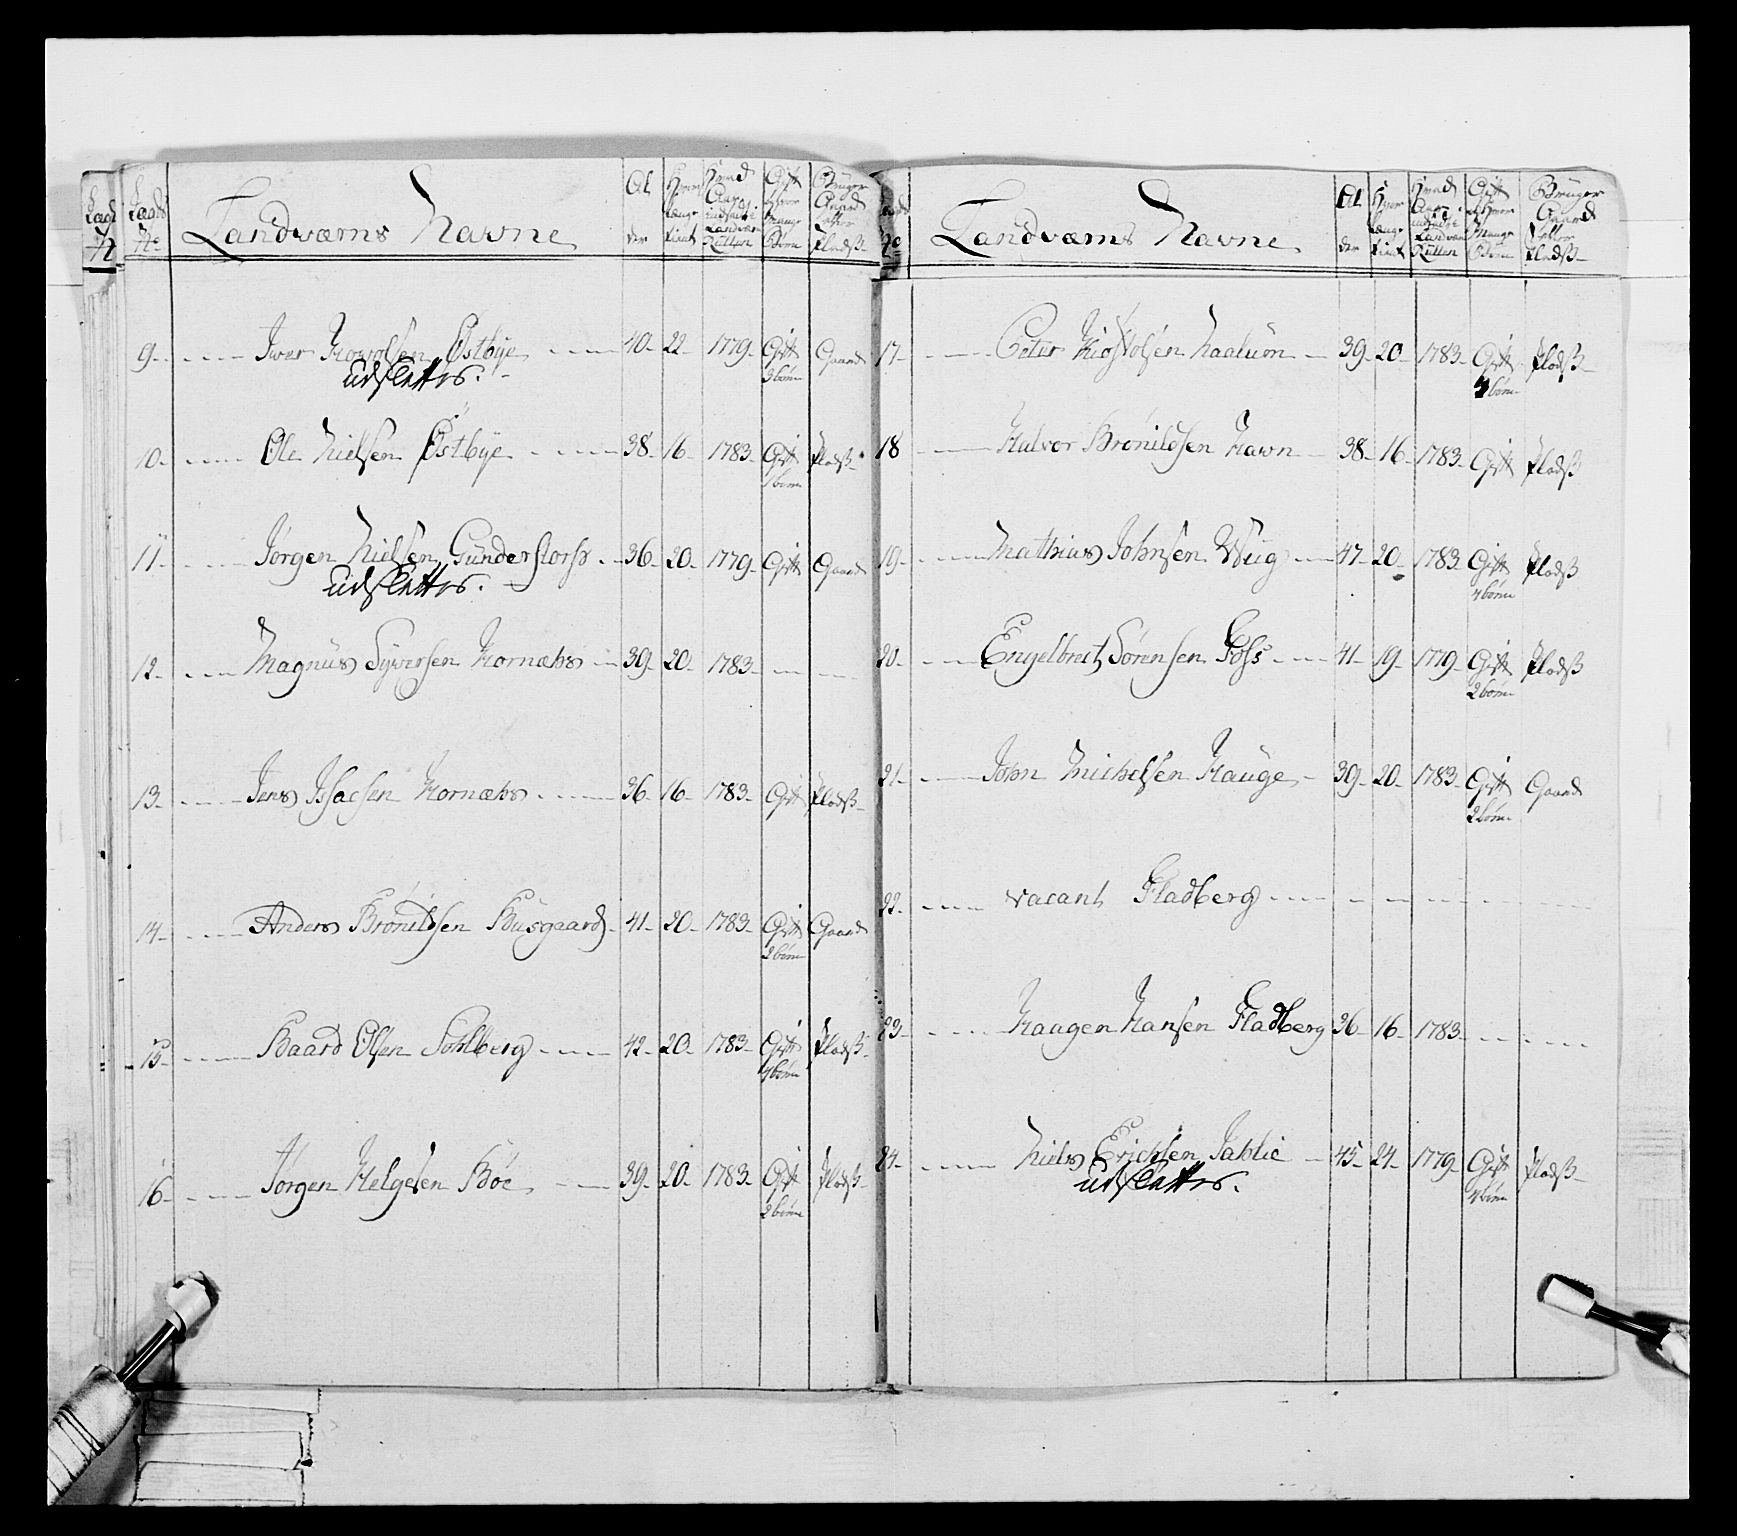 Lagds No Landværns Navne Alder Hvor længe tient Hvad Aar indsadt i Landværn Rullen Gift hvor Mange Børn Bruger Gaard eller Pladß
9. Iver Howelsen Østbye 40. 22. 1779. Gift Gaard
udslettes. 3 børn
10. Ole Nielsen Østbye 38. 16. 1783. Gift Pladß
1 børn
11. Jørgen Nielsen Gunderstorp 36. 20. 1779. Gift Gaard
udslettes.
12. Magnus Syversen Hornæs 39. 20. 1783.
13. Jens Issacsen Hornæs 36. 16. 1783. Gift Pladß
14. Anders Brønildsen Busgaard 41. 20. 1783. Gift Gaard
2 børn
15. Baard Olsen Solberg 42. 20. 1783. Gift Pladß
4 børn
16. Jørgen Helgesen Bøe 39. 20. 1783. Gift Pladß
2 børn
No Landværns Navne Alder Hvor længe tient Hvad Aar indsadt i Landværn Rullen Gift hvor Mange Børn Bruger Gaard eller Pladß
17. Peter Kiostolsen Naalum 39. 20. 1783. Gift Pladß
4 børn
18 Halvor Brønildsen Hawn 38. 16. 1783. Gift Pladß
19. Mathias Johnsen Wiig 47. 20. 1783. Gift Pladß
4 børn
20. Engelbrect Sørensen Foss 41. 19. 1779. Gift Pladß
2 børn
21. John Michelsen Hauge 39. 20. 1783. Gift Gaard
2 børn
22. vacant Fladberg
23. Haagen Hansen Fladberg 36. 16. 1783.
24. Niels Erichsen 45. 24. 1779. Gift Pladß
udslettes. børn